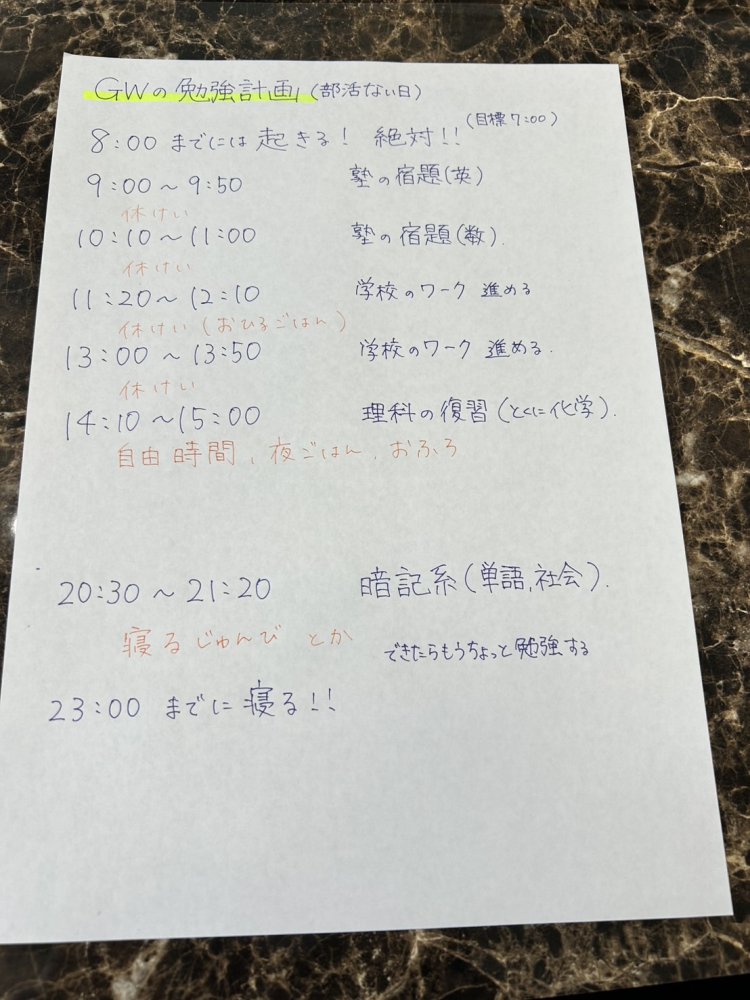 GWの勉強計画(部活ない日)
8:00 までには起きる! 絶対!! (目標7:00)
9:00〜9:50 塾の宿題(英)
休けい
10:10〜11:00 塾の宿題(数).
休けい
11:20〜12:10 学校のワーク 進める
休けい(おひるごはん)
13:00〜13:50 学校のワーク 進める.
休けい
14:10〜15:00 理科の復習(とくに化学).
自由時間, 夜ごはん, おふろ
20:30〜21:20 暗記系(単語,社会).
寝るじゅんび とか できたらもうちょっと勉強する
23:00 までに寝る!!